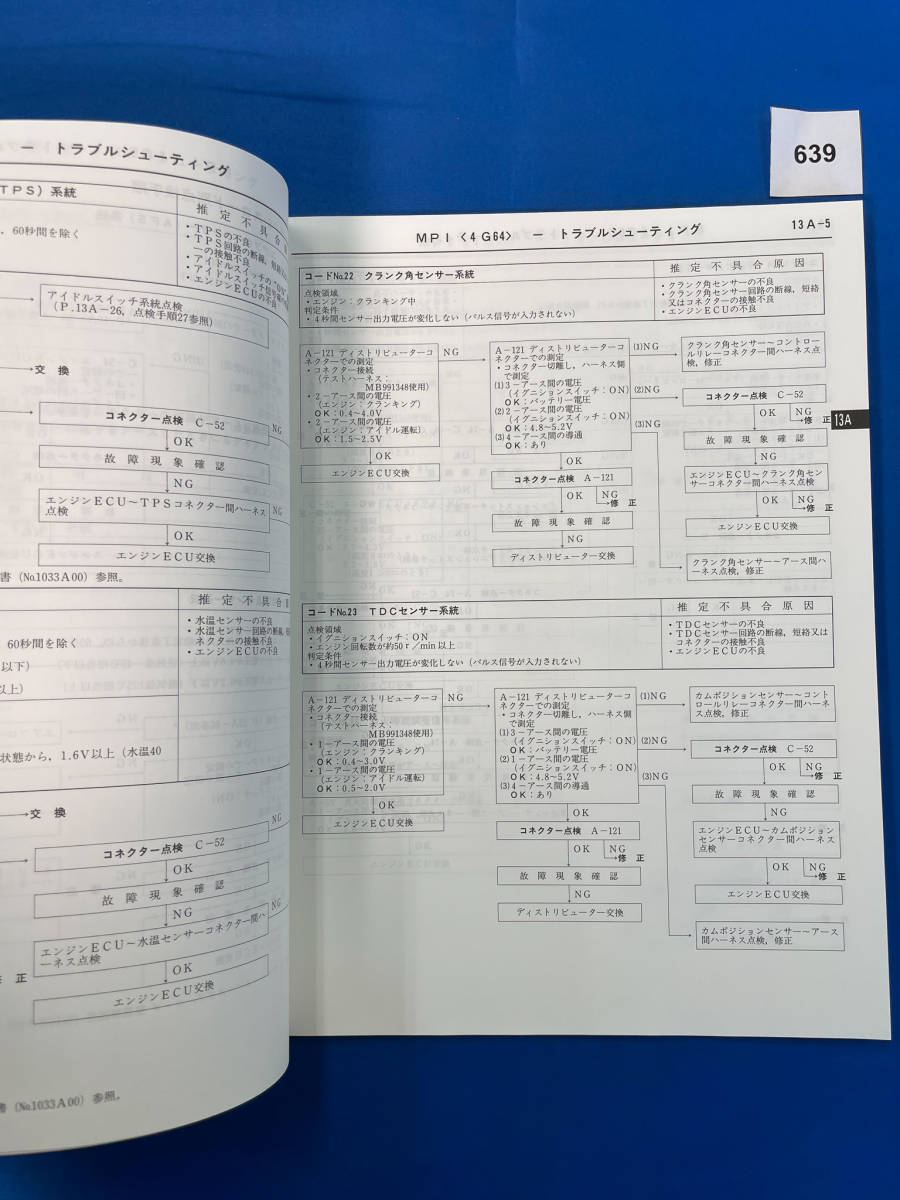 639
－ トラブルシューティング
TPS）系統
推 定 不 具 合
，60秒間を除く
・TPSの不良
・TPS回路の断線，
ーの接触不良
・アイドルスイッチの
・アイドルスイッチ
・エンジンECUの不良
アイドルスイッチ系統点検
（P.13A－26，点検手順27参照）
→交 換
コネクター点検 C－52
NG
OK
故 障 現 象 確 認
NG
エンジンECU～TPSコネクター間ハーネス
点検
NG
OK
エンジンECU交換
書（No.1033A00）参照。
推 定 不 具 合
・水温センサーの不良
・水温センサー回路の断線，
ネクターの接触不良
・エンジンECUの不良
60秒間を除く
以下）
以上）
状態から，1.6V以上（水温40
→交 換
コネクター点検 C－52
NG
OK
故 障 現 象 確 認
NG
エンジンECU～水温センサーコネクター間ハ
ーネス点検
NG
正
OK
エンジンECU交換
書（No.1033A00）参照。
MPI〈4G64〉 － トラブルシューティング
13A-5
コードNo.22 クランク角センサー系統
推 定 不 具 合 原 因
点検領域
・エンジン：クランキング中
判定条件
・4秒間センサー出力電圧が変化しない（パルス信号が入力されない）
・クランク角センサーの不良
・クランク角センサー回路の断線，短絡
又はコネクターの接触不良
・エンジンECUの不良
A－121 ディストリビューターコ
ネクターでの測定
・コネクター接続
（テストハーネス：
MB991348使用）
・2－アース間の電圧
（エンジン：クランキング）
OK：0.4～4.0V
・2－アース間の電圧
（エンジン：アイドル運転）
OK：1.5～2.5V
NG
OK
エンジンECU交換
A－121 ディストリビューターコ
ネクターでの測定
・コネクター切離し，ハーネス側
で測定
(1)3－アース間の電圧
（イグニションスイッチ：ON）
OK：バッテリー電圧
(2)2－アース間の電圧
（イグニションスイッチ：ON）
OK：4.8～5.2V
(3)4－アース間の導通
OK：あり
(1)NG
(2)NG
(3)NG
OK
コネクター点検 A－121
OK
NG
→修 正
故 障 現 象 確 認
NG
ディストリビューター交換
クランク角センサー～コントロー
ルリレーコネクター間ハーネス点
検，修正
コネクター点検 C－52
OK
NG
→修 正
13A
故 障 現 象 確 認
NG
エンジンECU～クランク角セン
サーコネクター間ハーネス点検
OK
NG
→修 正
エンジンECU交換
クランク角センサー～アース間ハ
ーネス点検，修正
コードNo.23 TDCセンサー系統
推 定 不 具 合 原 因
点検領域
・イグニションスイッチ：ON
・エンジン回転数が約50r／min以上
判定条件
・4秒間センサー出力電圧が変化しない（パルス信号が入力されない）
・TDCセンサーの不良
・TDCセンサー回路の断線，短絡又は
コネクターの接触不良
・エンジンECUの不良
A－121 ディストリビューターコ
ネクターでの測定
・コネクター接続
（テストハーネス：
MB991348使用）
・1－アース間の電圧
（エンジン：クランキング）
OK：0.4～3.0V
・1－アース間の電圧
（エンジン：アイドル運転）
OK：0.5～2.0V
NG
OK
エンジンECU交換
A－121 ディストリビューターコ
ネクターでの測定
・コネクター切離し，ハーネス側
で測定
(1)3－アース間の電圧
（イグニションスイッチ：ON）
OK：バッテリー電圧
(2)1－アース間の電圧
（イグニションスイッチ：ON）
OK：4.8～5.2V
(3)4－アース間の導通
OK：あり
(1)NG
(2)NG
(3)NG
OK
コネクター点検 A－121
OK
NG
→修 正
故 障 現 象 確 認
NG
ディストリビューター交換
カムポジションセンサー～コント
ロールリレーコネクター間ハーネ
ス点検，修正
コネクター点検 C－52
OK
NG
→修 正
故 障 現 象 確 認
NG
エンジンECU～カムポジション
センサーコネクター間ハーネス
点検
OK
NG
→修 正
エンジンECU交換
カムポジションセンサー～アース
間ハーネス点検，修正